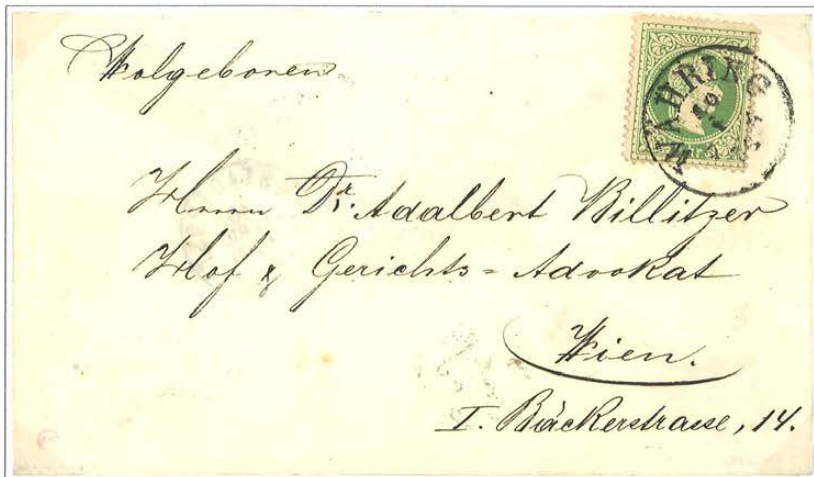 Wolgeboren
WÄHRING
Herrn Dr. Adalbert Billitzer
Hof & Gerichts=Advokat
Wien.
I. Bäckerstrasse, 14.